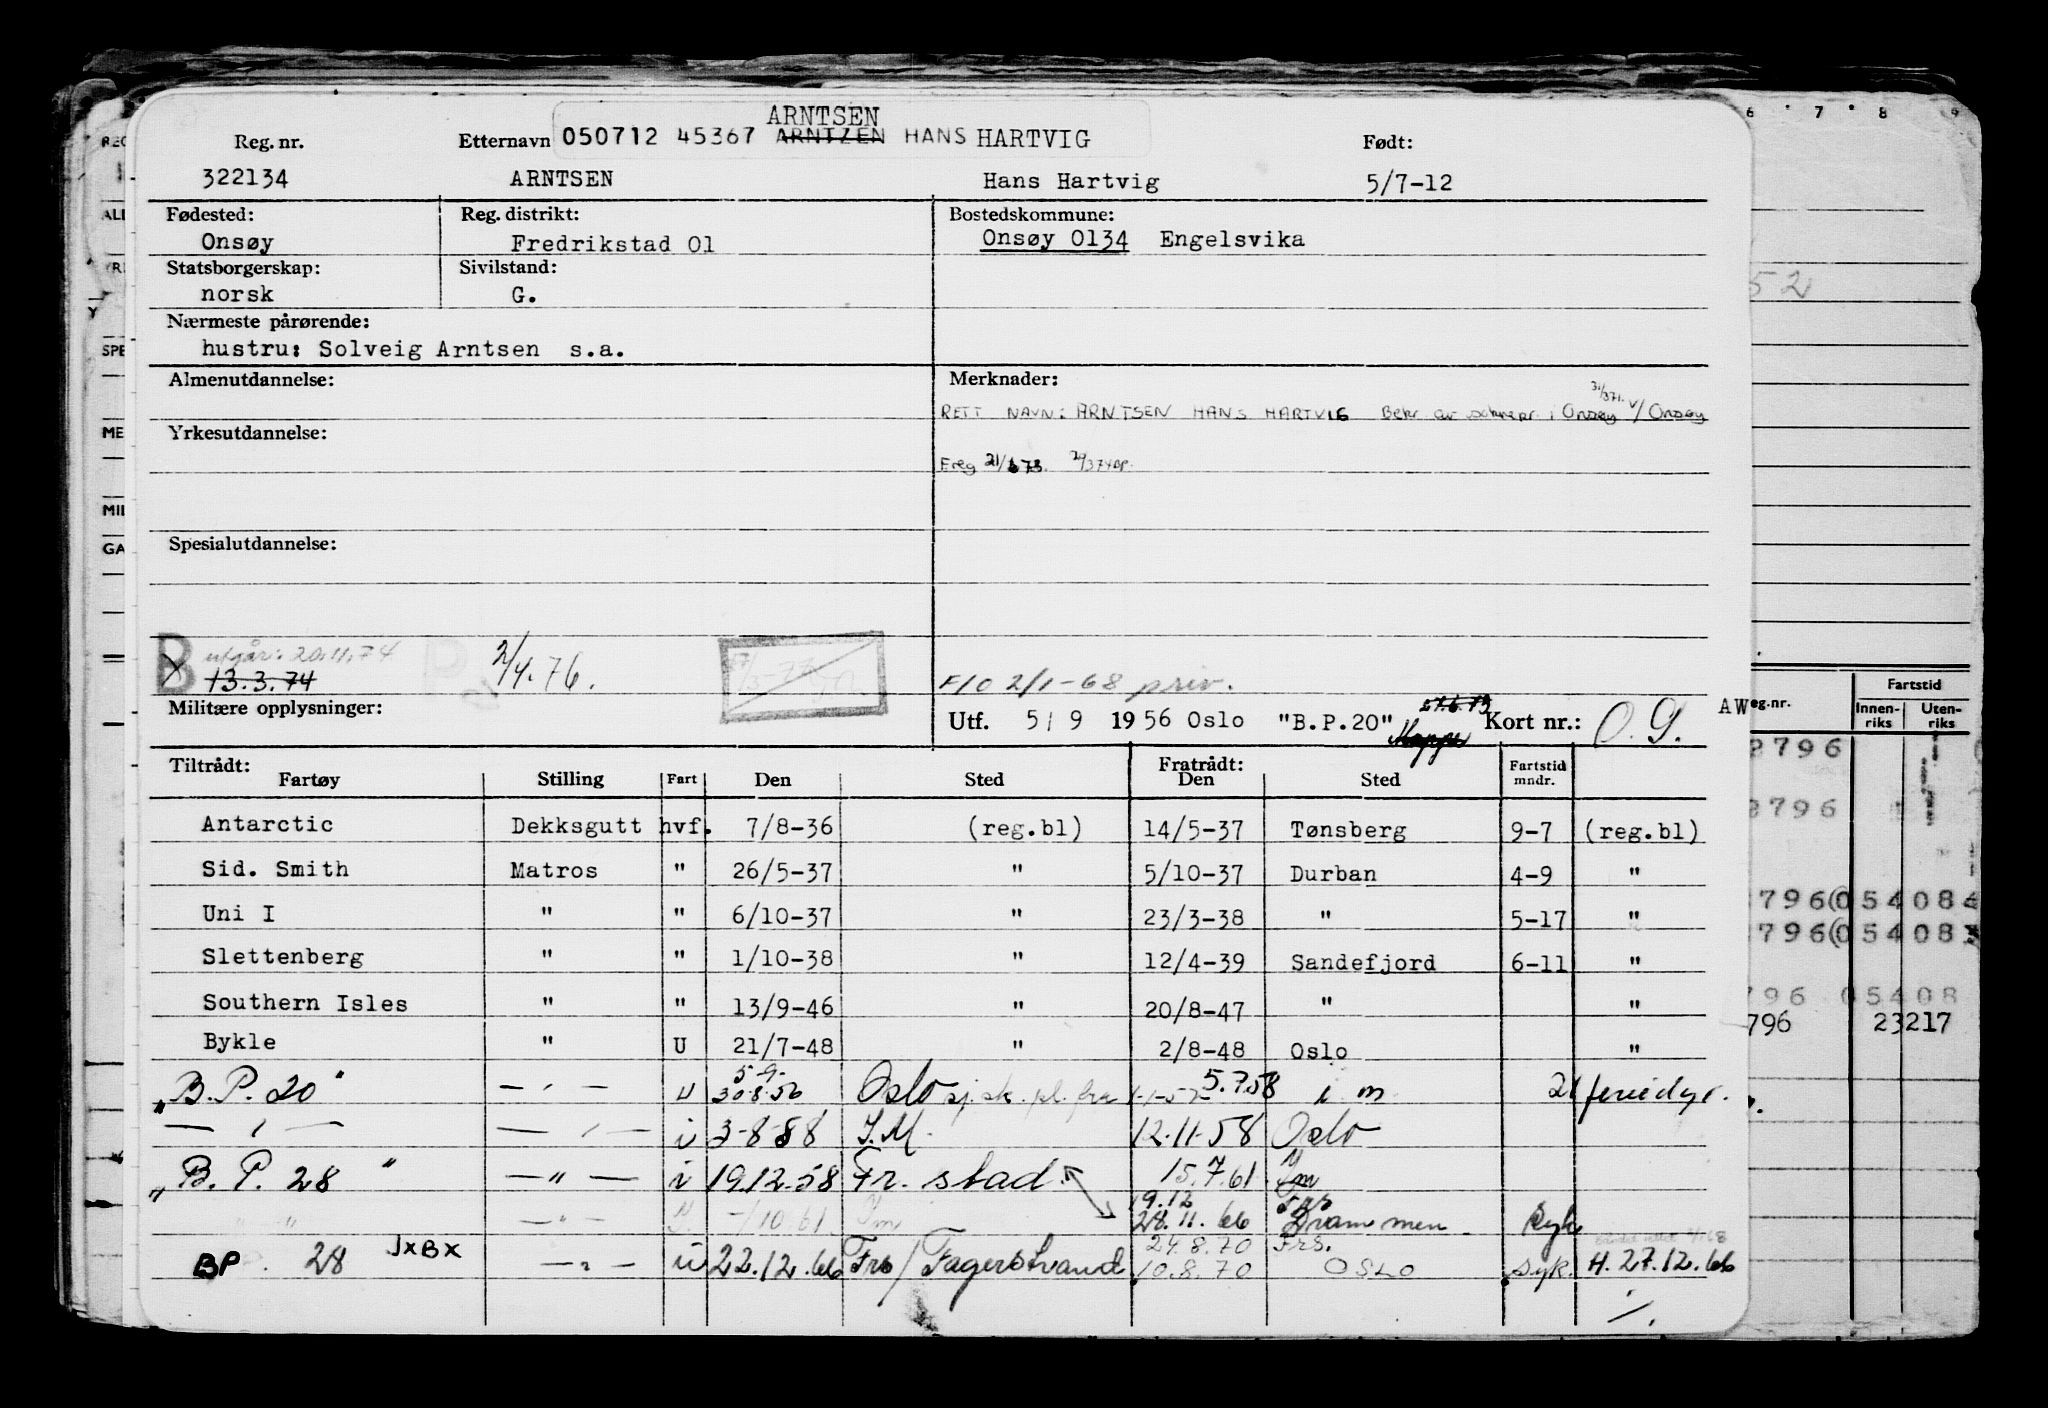 ARNTSEN
Reg. nr. Etternavn 050712 45367 ARNTZEN HANS HARTVIG Født:
322134 ARNTSEN Hans Hartvig 5/7-12
Fødested: Reg. distrikt: Bostedskommune:
Onsøy Fredrikstad 01 Onsøy 0134 Engelsvika
Statsborgerskap: Sivilstand:
norsk G.
Nærmeste pårørende:
hustru: Solveig Arntsen s.a.
Almenutdannelse: Merknader:
RETT NAVN: ARNTSEN HANS HARTVIG Bekr. av i Onsøy v/ Onsøy
Yrkesutdannelse:
Freg
Spesialutdannelse:
B utgår: 20.11.74 2/4.76.
13.3.74 F/O 2/1-68 priv.
Militære opplysninger: Utf. 5/9 1956 Oslo "B.P.20" Mappe 27.6.73 Kort nr.: O.S.
Tiltrådt: Fratrådt:
Fartøy Stilling Fart Den Sted Den Sted Fartstid mndr.
Antarctic Dekksgutt hvf. 7/8-36 (reg.bl) 14/5-37 Tønsberg 9-7 (reg.bl)
Sid. Smith Matros " 26/5-37 " 5/10-37 Durban 4-9 "
Uni I " " 6/10-37 " 23/3-38 " 5-17 "
Slettenberg " " 1/10-38 " 12/4-39 Sandefjord 6-11 "
Southern Isles " " 13/9-46 " 20/8-47 " "
Bykle " U 21/7-48 " 2/8-48 Oslo "
5-9-
"B.P. 20" — " — u 30.8.56 Oslo sj.sk. pl. fra 1-1-57 5.7.58 i m 21 feriedgr.
— " — — " — i 3-8-58 I.M. 12.11.58 Oslo
"B.P. 28" — " — i 19.12.58 Fr.stad. 15.7.61 Im
19.12 Frs
" " — " — -/10.61 Im 28.11.66 Drammen Syk
24.8.70 Frs.
BP. 28 JxBx — " — u 22.12.66 Frs/Fagerstrand 10.8.70 OSLO syk. H. 27.12.66
./.
6 7 8 9
52
REG
ALL
YR
Y
SPE
ME
MIL
GA
AW eg.nr. Fartstid
Innen-riks Uten-riks
8796
8796
796 054084
796 05408
796 05408
796 23217